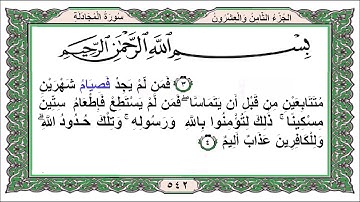 سُورَةُ المُجَادلَةِ الجُزءُ الثَّامِنُ وَالعِشْرُونَ
بِسْمِ اللَّهِ الرَّحْمَٰنِ الرَّحِيمِ
٣ فَمَن لَّمْ يَجِدْ فَصِيَامُ شَهْرَيْنِ
مُتَتَابِعَيْنِ مِن قَبْلِ أَن يَتَمَاسَّا ۖ فَمَن لَّمْ يَسْتَطِعْ فَإِطْعَامُ سِتِّينَ
مِسْكِينًا ۚ ذَٰلِكَ لِتُؤْمِنُوا بِاللَّهِ وَرَسُولِهِ ۚ وَتِلْكَ حُدُودُ اللَّهِ ۗ
وَلِلْكَافِرِينَ عَذَابٌ أَلِيمٌ ٤
٥٤٢